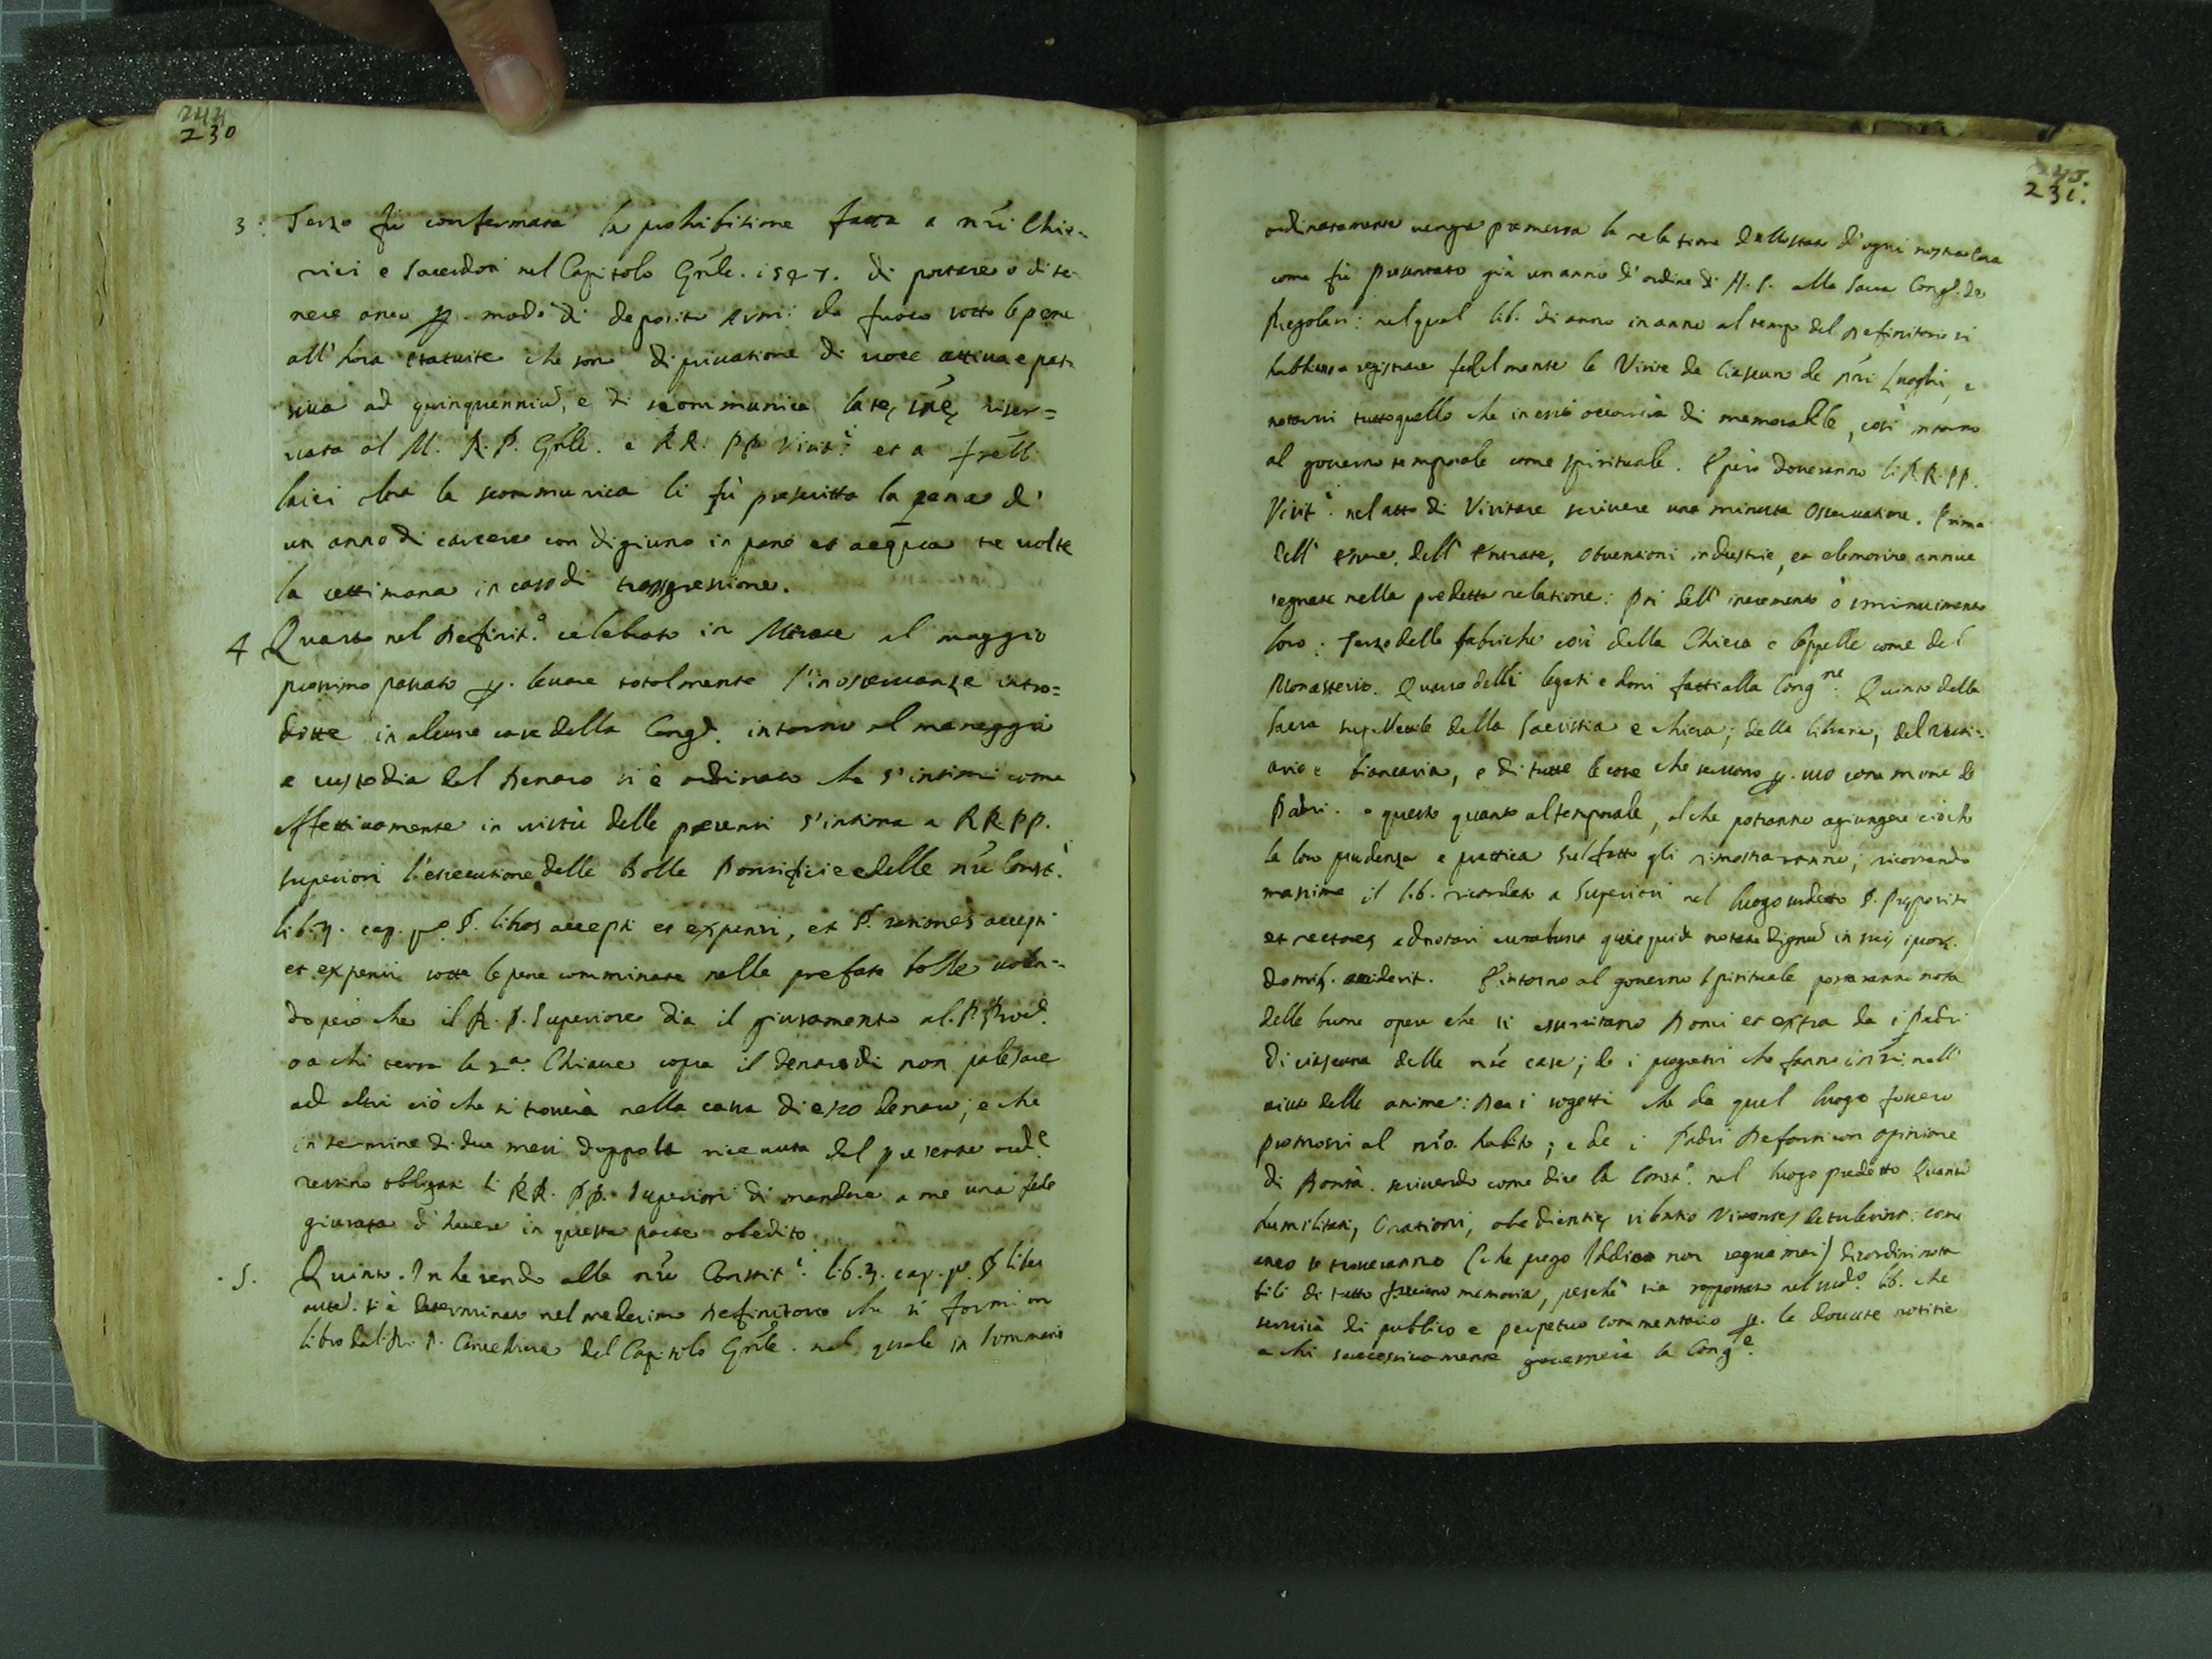 244
230
3: Terzo fù confermata la prohibitione fatta a nr̃i Chie-
rici e sacerdoti nel Capitolo Gñle. di portare o di te-
nere anco p. modo di deposito Armi da fuoco sotto le pene
all'hora statuite che sono di priuatione di uoce attiua e pas-
siua ad quinquenniũ, e di scommunica latę sñę riser=
uata al M. R. P. Gñle. e RR. PP. Visit.ⁱ et a frẽlli
laici oltra la scommunica li fù prescritta la pena d'
un anno di carcere con digiuno in pane et acqua tre uolte
la settimana in caso di trasgressione.
4 Quarto nel Definit.º celebrato in al maggio
prossimo passato p. leuare totalmente l'inosseruanze intro=
dotte in alcune case della Congᵉ. intorno al maneggio
e custodia del Denaro si è ordinato che s'intimi come
effettiuamente in uirtù delle presenti s'intima a RR. PP.
superiori l'essecutione delle Bolle Pontificie e delle nr̃e Const.ⁱ
lib. 3. cap. pº. §. libros accepti et expensi, et §. rationes accepti
et expensi sotto le pene comminate nelle prefate bolle uolen-
do però che il R. P. Superiore dia il giuramento al P. Proc.
o a chi terrà la 2ª. Chiaue sopra il denaro di non palesare
ad altri ciò che si trouerà nella cassa di esso denaro; e che
in termine di due mesi doppo la riceuuta del presente ord.ᵉ
restino obligati li RR. PP. superiori di mandare a me una fede
giurata d'hauere in questa parte obedito.
5. Quinto. Inherendo alle nr̃e Constit.ⁱ lib. 3. cap. pº. § liber
autẽ. si è determinato nel medesimo Definitorio che si formi un
libro dal R. P. Cancelliere del Capitolo Gñle. nel quale in sommario
245.
231.
ordinatamente uenga premessa la relatione dello stato d'ogni nostra Casa
come fù presentato già un anno d'ordine di N. S. alla Sacra Cong. de
Regolari: nel qual lib. di anno in anno al tempo del Definitorio si
habbiano a registrare fedelmente le Visite de ciascuno de nr̃i luoghi, e
notarui tutto quello che in essi occorrerà di memorabile, così intorno
al gouerno temporale come spirituale. E però doueranno li RR. PP.
Visit.ⁱ nel atto di Visitare scriuere una minuta osseruatione. Prima
dell' dell' Entrate, obuentioni industrie, et elemosine annue
segnate nella predetta relatione: Poi dell' incremento ò sminuimento
loro: Terzo delle fabriche così della Chiesa e Cappelle come del
Monasterio. Quarto delli legati e doni fatti alla Congⁿᵉ: Quinto della
sacra supellettile della sacristia e chiesa; della libraria, del uesti-
ario e biancaria, e di tutte le cose che seruono p. uso comune de
Padri. e questo quanto al temporale, al che potranno agiungere ciò che
la loro prudenza e prattica sul fatto gli rimostraranno; ricorrendo
massime il lib. ricordato a Superiori nel luogo sudetto §. Prepositi
et rectores adnotari curabunt quicquid notatu dignũ in suis ipsor.
domib. acciderit. E intorno al gouerno spirituale portaranno nota
delle buone opere che si essercitano Domi et extra da i Padri
di ciascuna delle nr̃e case; de i progressi che fanno i nr̃i nell'
aiuto delle anime: De i sogetti che da quel luogo fossero
promossi al nr̃o habito; e de i Padri Defonti con opinione
di Bontà. scriuendo come dice la Const.ⁱ nel luogo predetto Quanti
humilitatis, Orationi, obedientiæ Viuentes detulerint: come
anco se troueranno (che prego Iddio non segua mai) disordini nota-
bili di tutto faccino memoria, perche sia rapportato nel sudº. lib. che
seruirà di publico e perpetuo commentario p. le douute notitie
a chi successiuamente gouernerà la Congᵉ.